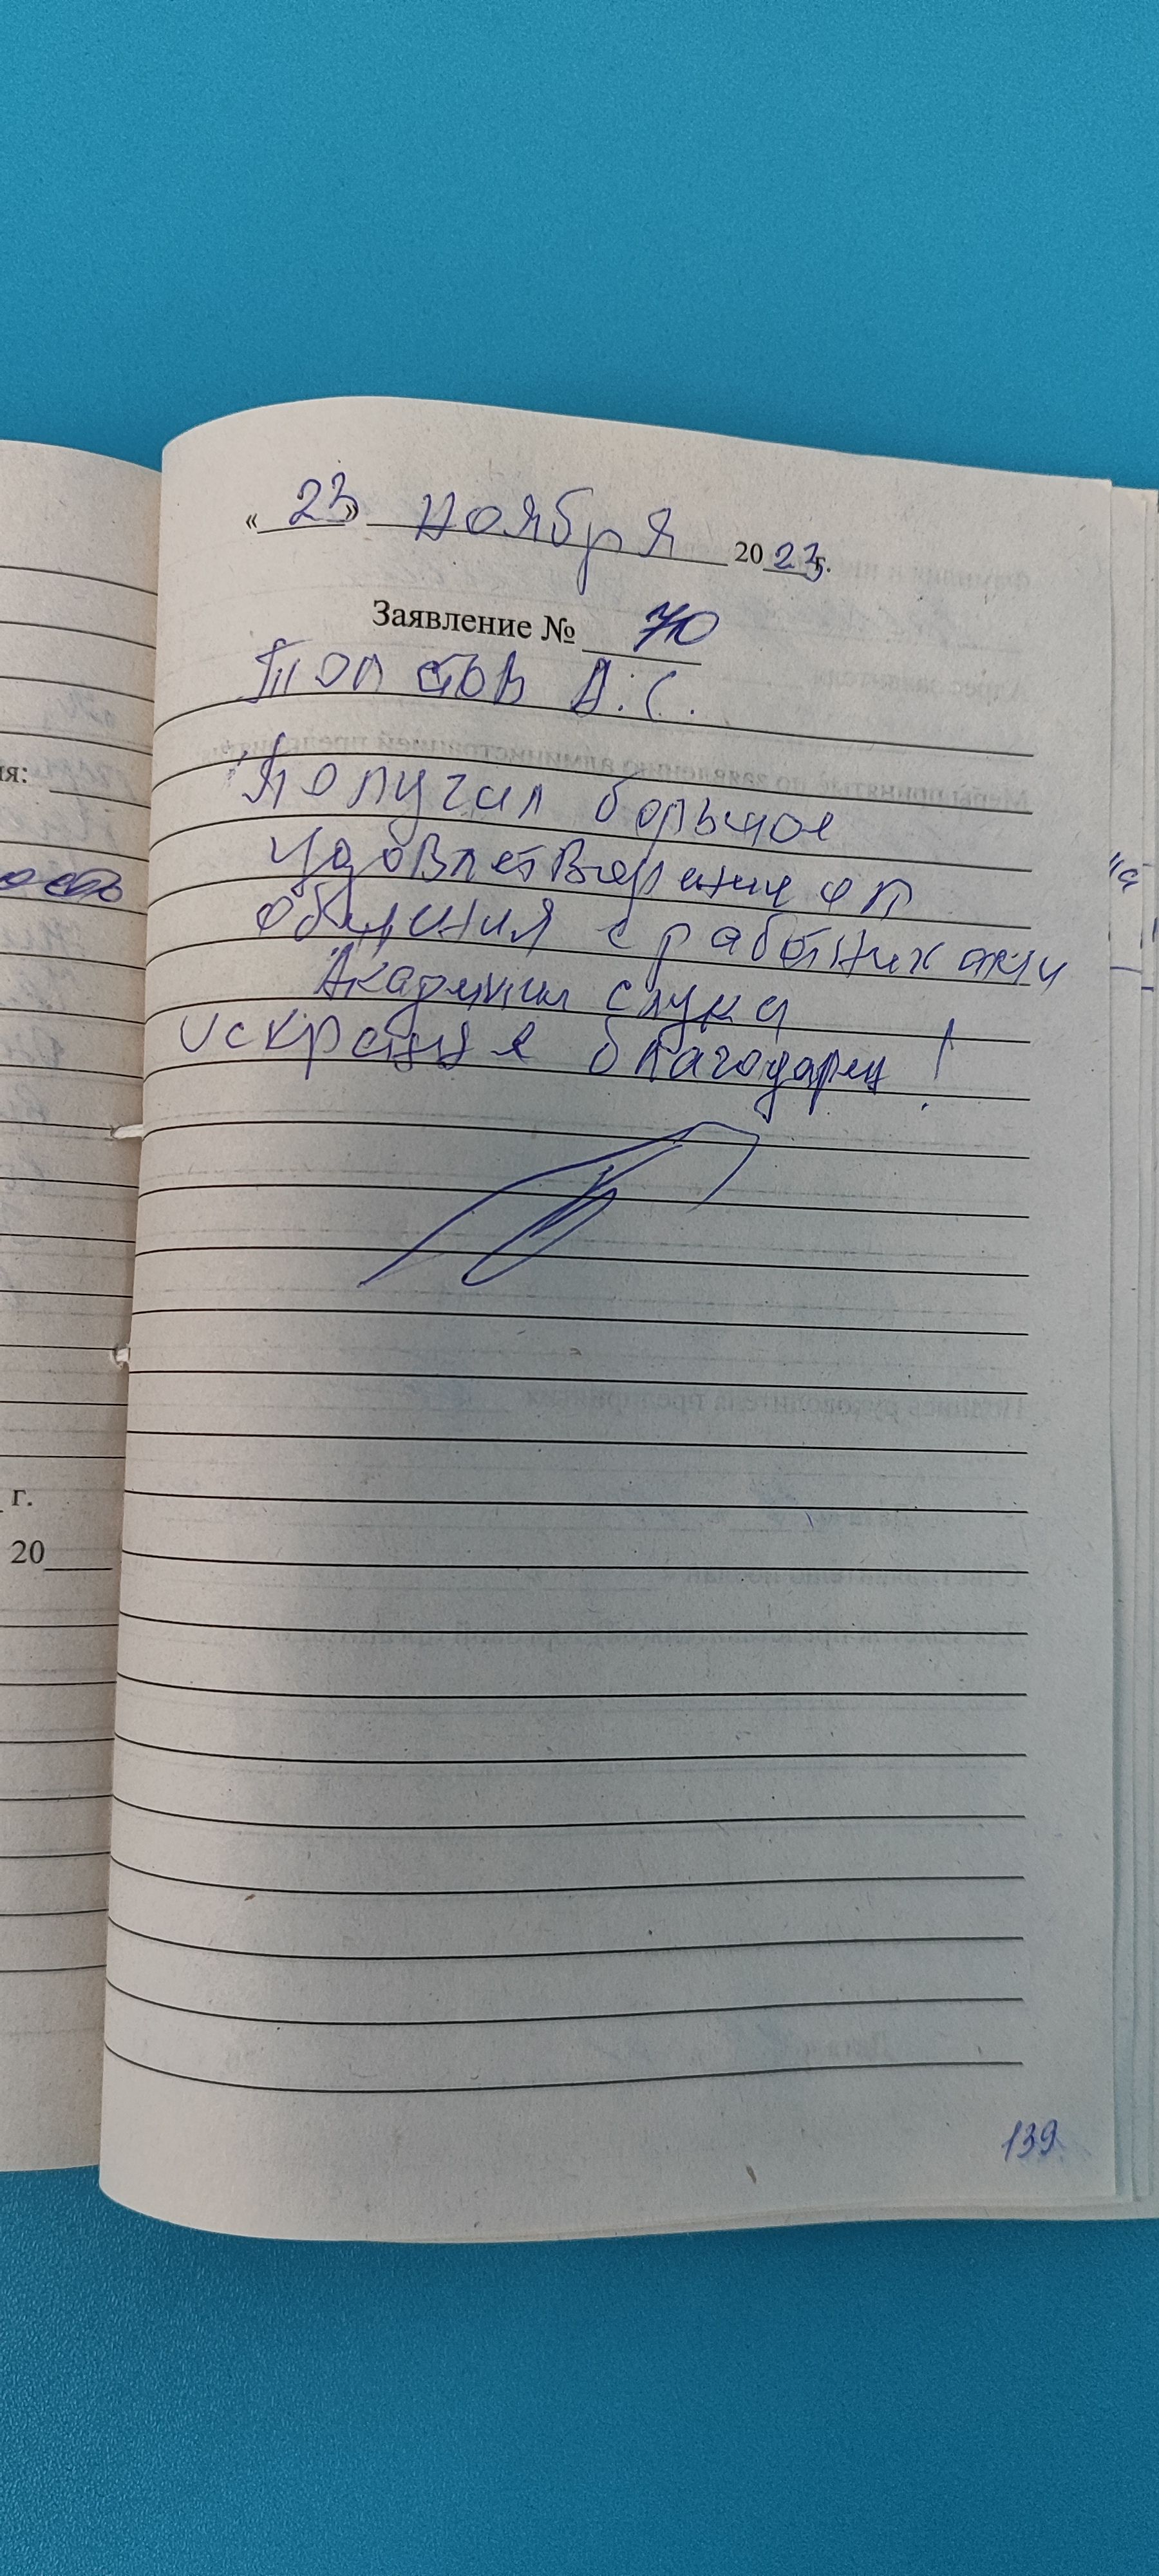 « 23 » ноября 2023г.
Заявление № 70
Толстов А.С.
Получил большое
удовлетворение от
общения с работниками
Академии слуха
искренне благодарен!
ия:
ость
г.
20
139